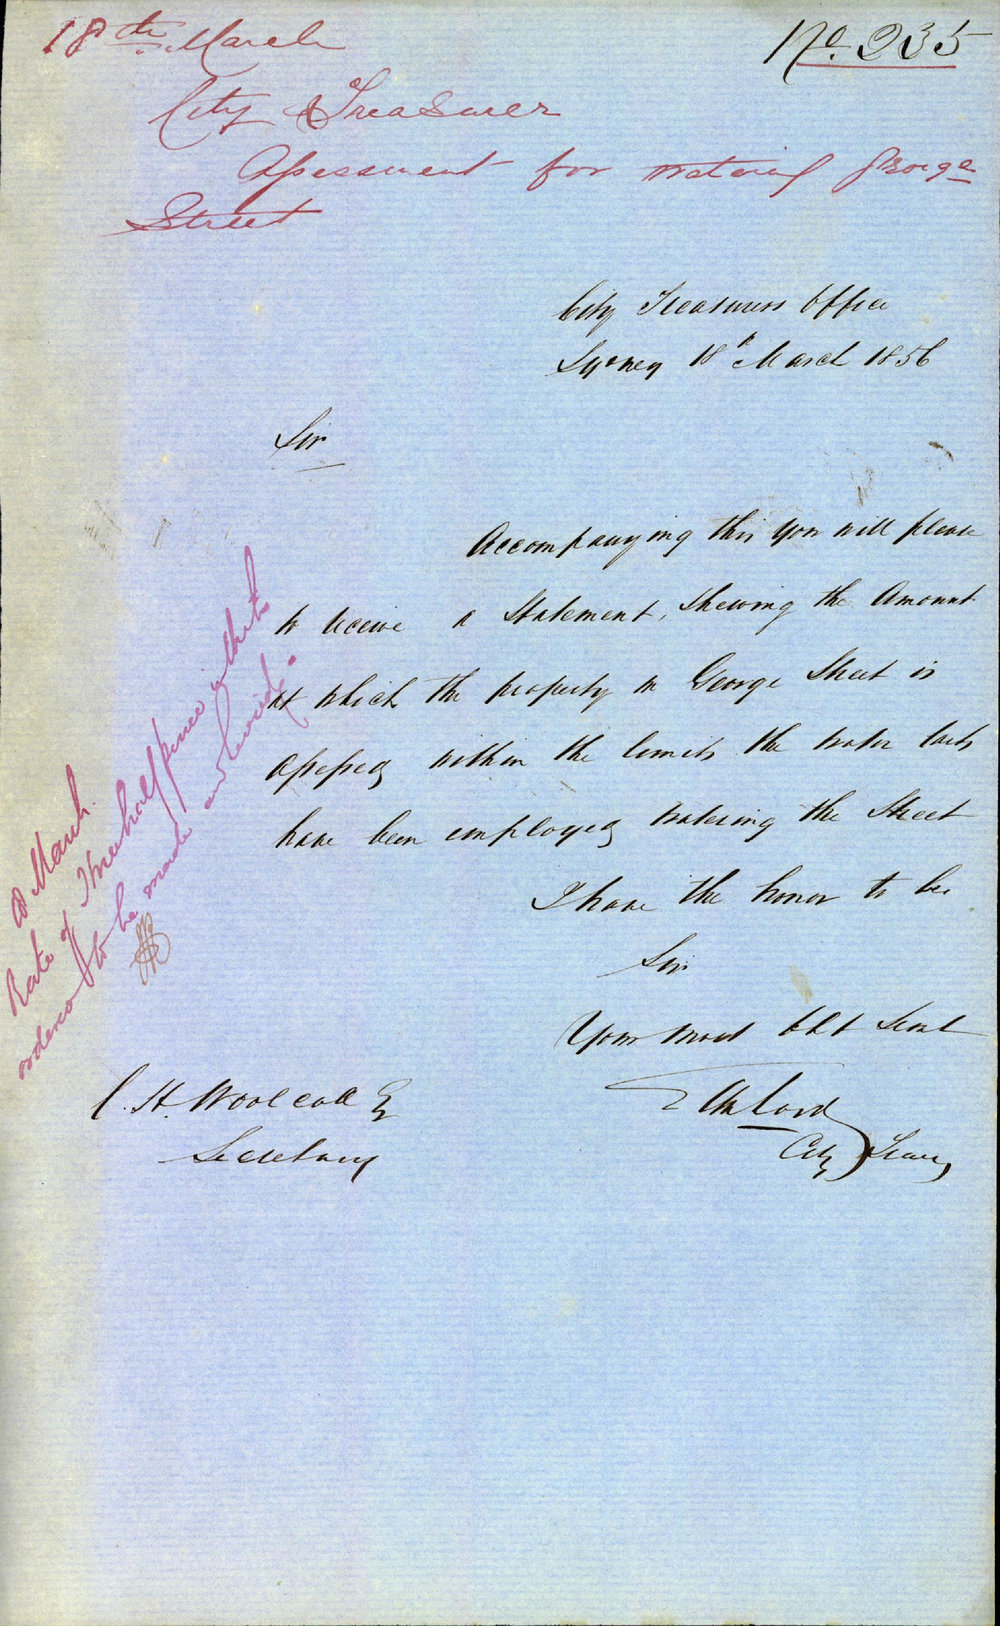 18th March
No. 235
City Treasurer
Assessment for watering George
Street
City Treasurers Office
Sydney 18th March 1856
Sir
Accompanying this you will please
to receive a Statement, shewing the Amount
at which the property in George Street is
assessed within the limits the water carts
have been employed watering the Street
I have the honor to be
Sir
Your most Obt Servt
City Treasr
C. H. Woolcott Esq
Secretary
18 March.
Rate of Three half pence in the £
ordered to be made and levied.